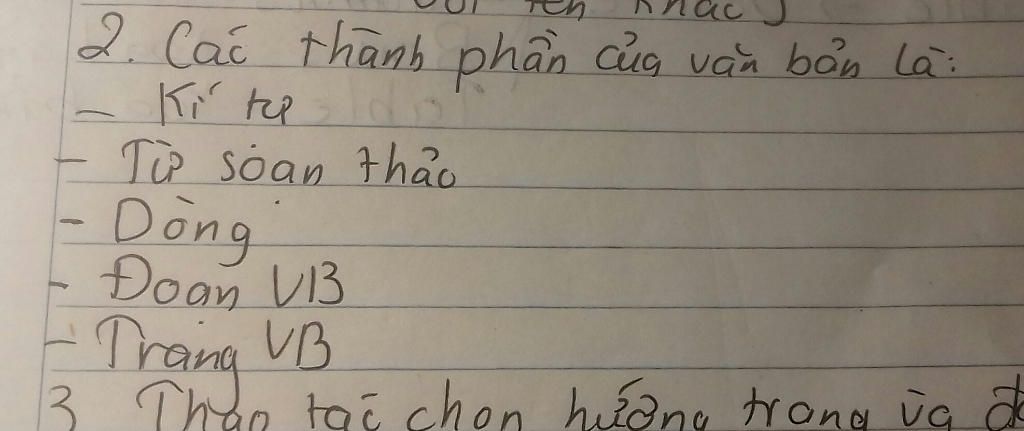 với tên khác)
2. Các thành phần của văn bản là:
- Kí tự
- Từ soạn thảo
- Dòng
- Đoạn VB
- Trang VB
3 Thao tác chọn hướng trang và